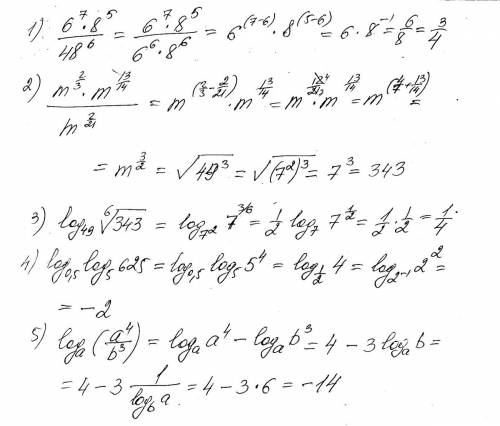 1) \frac{6^7 \cdot 8^5}{48^6} = \frac{6^7 \cdot 8^5}{6^6 \cdot 8^6} = 6^{(7-6)} \cdot 8^{(5-6)} = 6 \cdot 8^{-1} = \frac{6}{8} = \frac{3}{4}
2) \frac{m^{\frac{2}{3}} \cdot m^{\frac{13}{14}}}{m^{\frac{2}{21}}} = m^{(\frac{2}{3} - \frac{2}{21})} \cdot m^{\frac{13}{14}} = m^{\frac{12}{21}} \cdot m^{\frac{13}{14}} = m^{(\frac{4}{7} + \frac{13}{14})} =
= m^{\frac{3}{2}} = \sqrt{49^3} = \sqrt{(7^2)^3} = 7^3 = 343
3) log_{49} \sqrt[6]{343} = log_{7^2} 7^{3/6} = \frac{1}{2} log_7 7^{\frac{1}{2}} = \frac{1}{2} \cdot \frac{1}{2} = \frac{1}{4}
4) log_{0,5} log_5 625 = log_{0,5} log_5 5^4 = log_{\frac{1}{2}} 4 = log_{2^{-1}} 2^2 =
= -2
5) log_a (\frac{a^4}{b^3}) = log_a a^4 - log_a b^3 = 4 - 3 log_a b =
= 4 - 3 \frac{1}{log_b a} = 4 - 3 \cdot 6 = -14